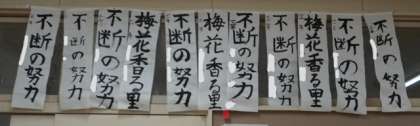 不断の努力
不断の努力
梅花香る里
不断の努力
不断の努力
梅花香る里
不断の努力
梅花香る里
不断の努力
不断の努力
不断の努力